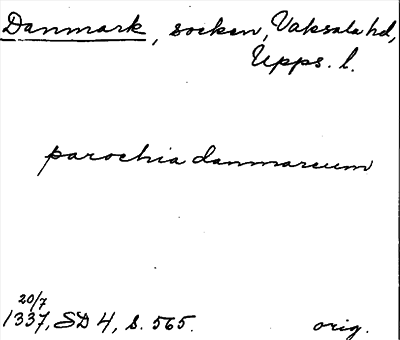 Danmark, socken, Vaksala hd,
Upps. l.
parochia danmarcum
20/7
1337, SD 4, s. 565. orig.